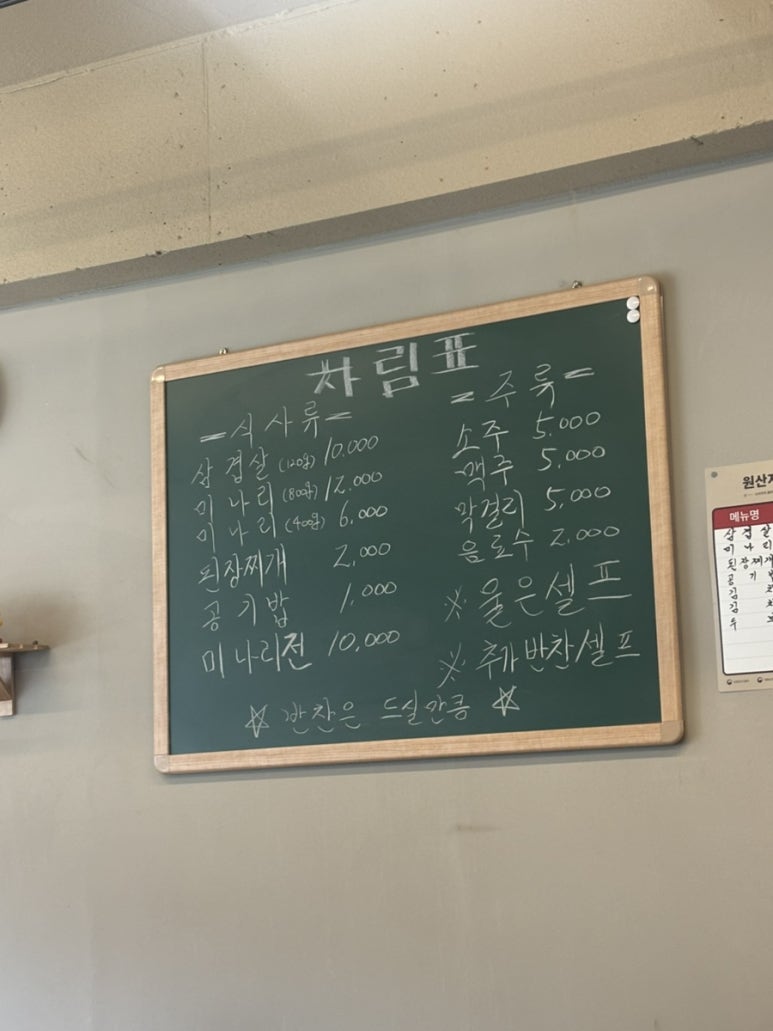 차림표
= 식사류 =
삼겹살 (120g) 10,000
미나리 (800g) 12,000
미나리 (400g) 6,000
된장찌개 2,000
공기밥 1,000
미나리전 10,000
= 주류 =
소주 5.000
맥주 5,000
막걸리 5,000
음료수 2,000
※ 물은셀프
※ 추가반찬셀프
☆ 반찬은 드실만큼 ☆
메뉴명
삼겹살
미나리
된장찌개